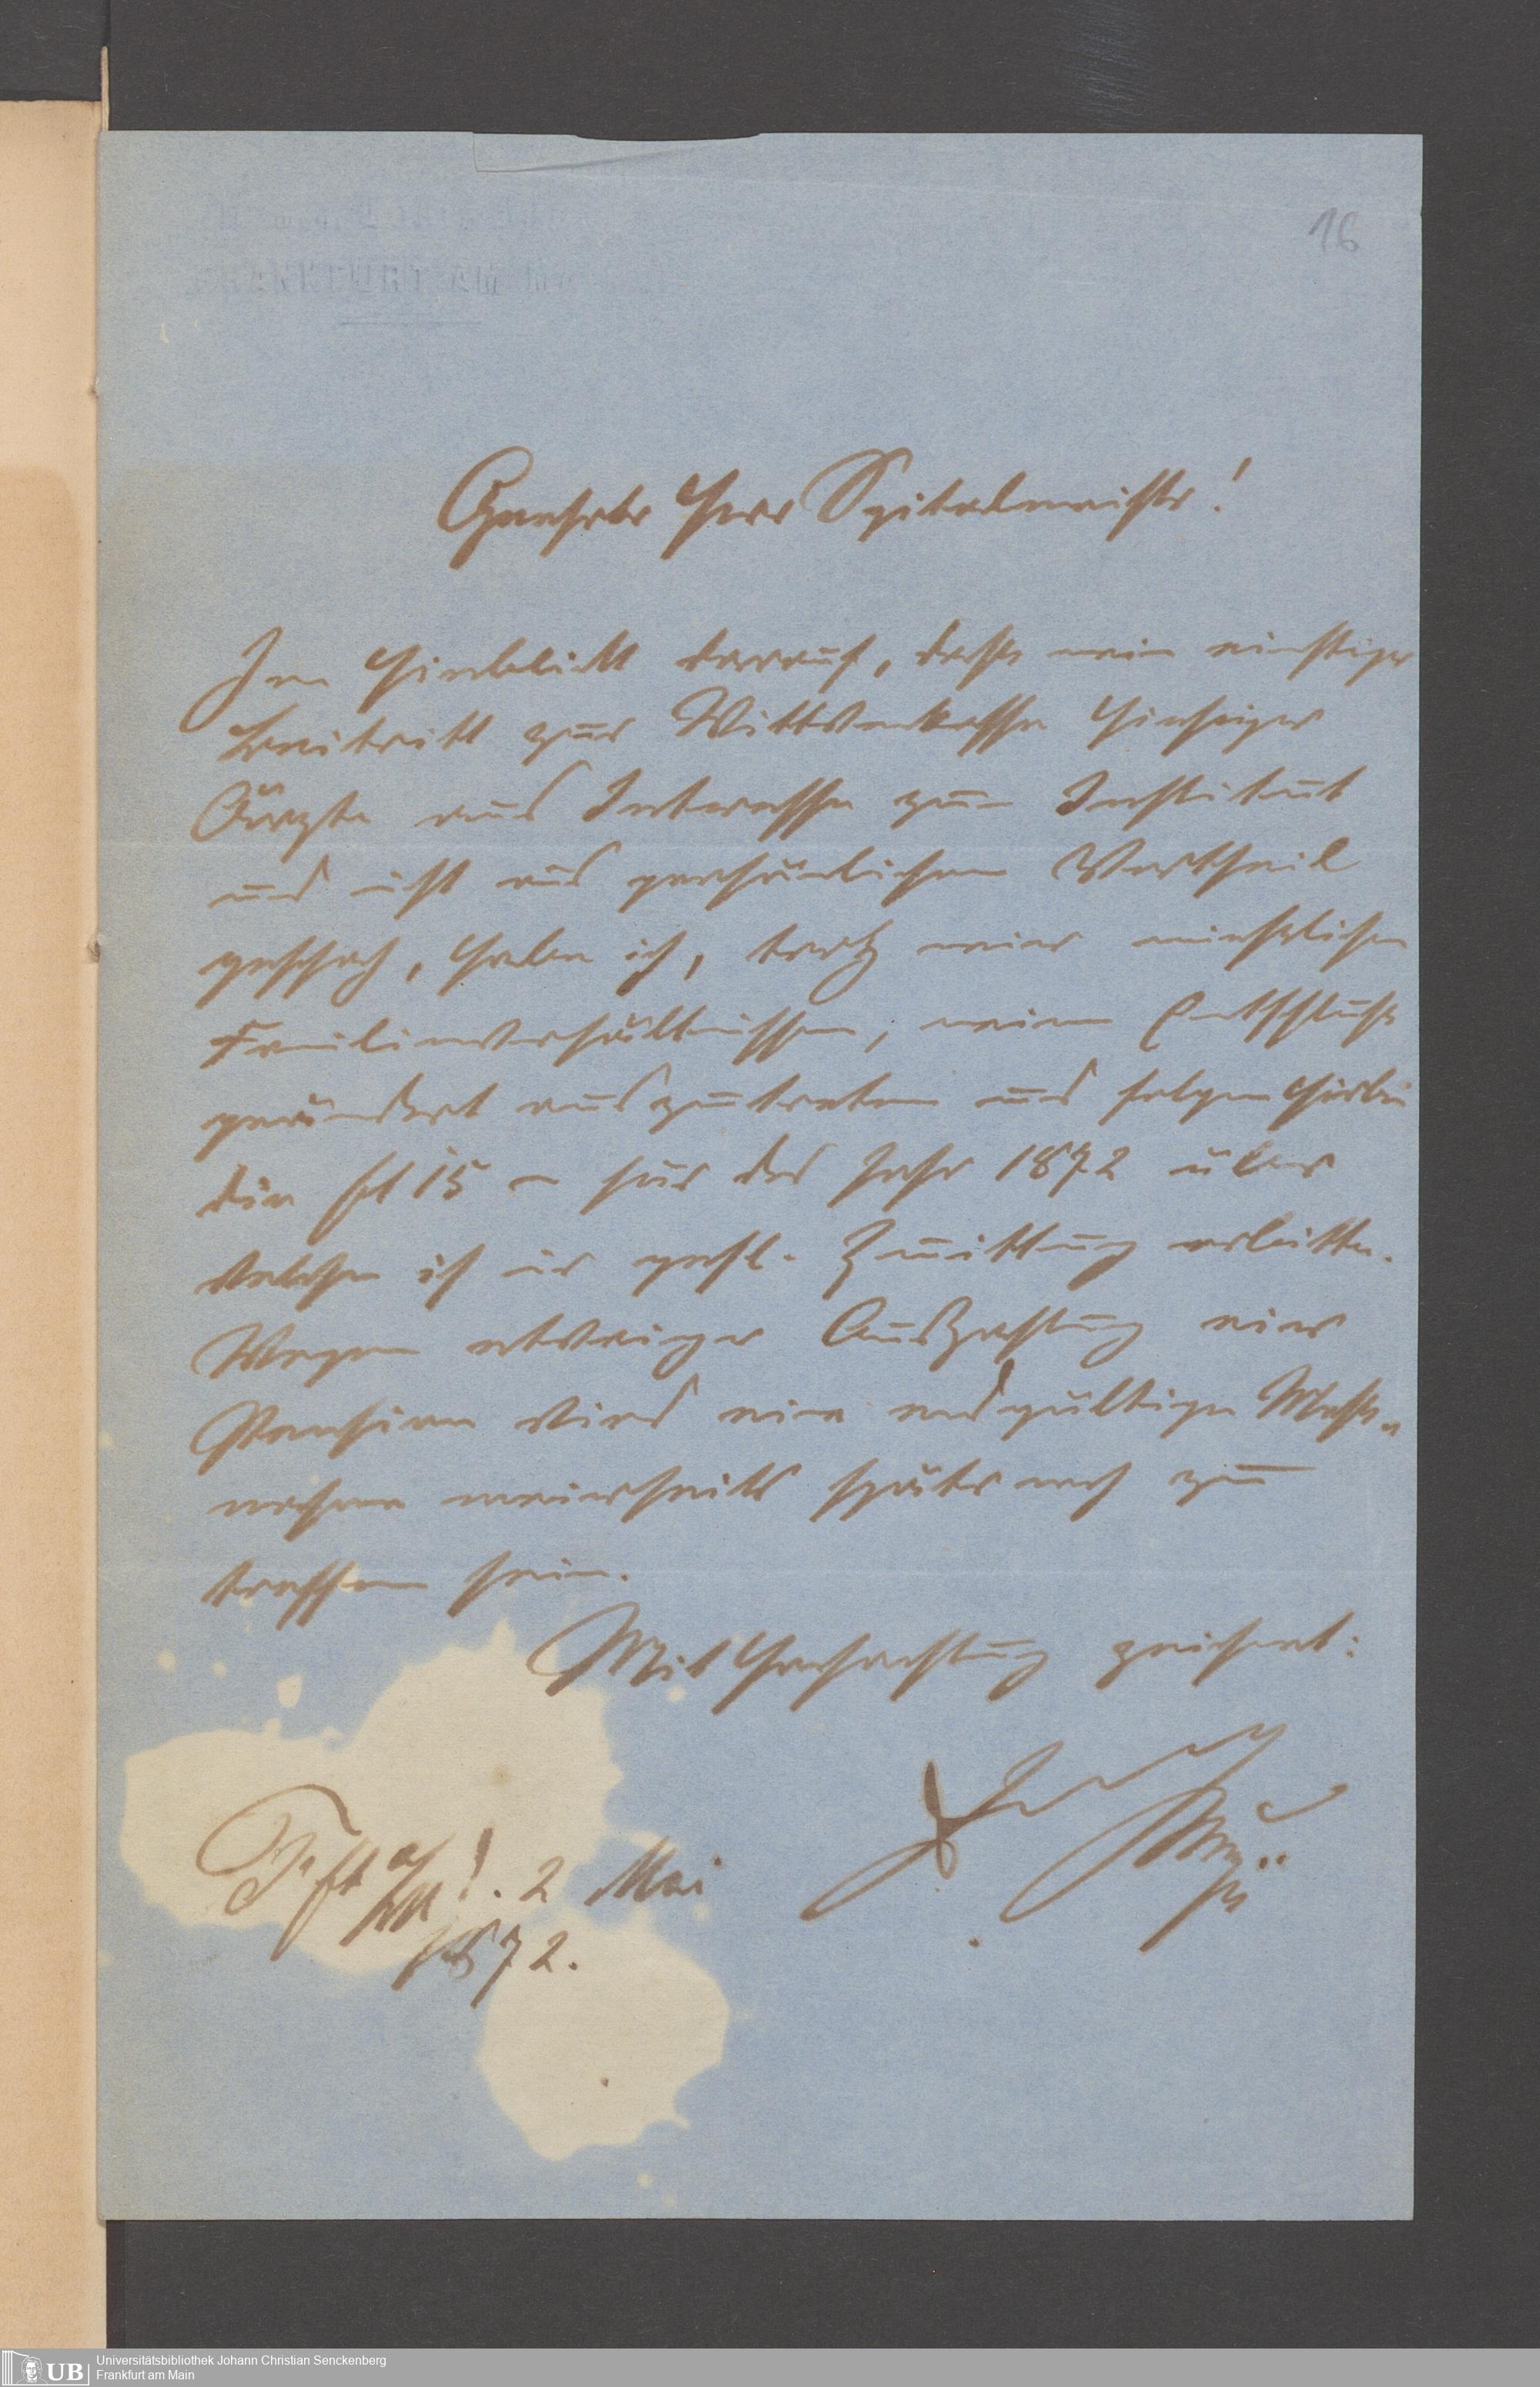 16
FRANKFURT AM
Geehrter Herr Spitalmeister!
Im Hinblick darauf, dass mein einstiger
Beitritt zur Wittwenkasse hiesiger
Ärzte aus Interesse zum Institut
und nicht aus persönlichem Vortheil
geschah, habe ich, trotz meiner
Familienverhältnissen, meinen Entschluss
geändert auszutreten und folgen hierbei
die fl 15 – für das Jahr 1872 über
welche ich mir gefl. Quittung erbitte.
Wegen etwaiger Auszahlung einer
Pension wird eine endgültige Mass-
nahme meinerseits später noch zu
treffen sein.
Mit Hochachtung zeichnet:
2 Mai
1872.
Universitätsbibliothek Johann Christian Senckenberg
Frankfurt am Main
UB